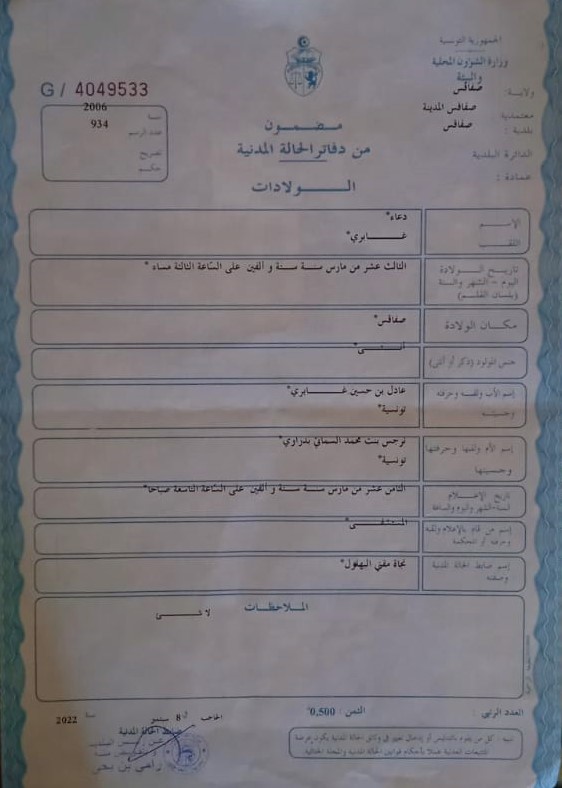 الجمهورية التونسية
وزارة الشؤون المحلية
والبيئة
ولاية: صفاقس
معتمدية صفاقس المدينة
بلدية : صفاقس
الدائرة البلدية
عمادة :
G / 4049533
سنة 2006
عدد الرسم 934
تصريح
حكم
مضمون
من دفاتر الحالة المدنية
الولادات
الإسم دعاء*
اللقب غابري*
تاريخ الولادة الثالث عشر من مارس سنة ستة و ألفين على الساعة الثالثة مساء *
اليوم - الشهر والسنة
(بلسان القلم)
مكان الولادة صفاقس*
جنس المولود (ذكر أو أنثى) أنثى*
إسم الأب ولقبه وحرفته عادل بن حسين غابري*
وجنسيته تونسية*
إسم الأم ولقبها وحرفتها نرجس بنت محمد السمائي بدراوي*
وجنسيتها تونسية*
تاريخ الإعلام الثامن عشر من مارس سنة ستة و ألفين على الساعة التاسعة صباحا*
السنة-الشهر واليوم والساعة
إسم من قام بالإعلام ولقبه المستشفى*
وحرفته أو المحكمة
إسم ضابط الحالة المدنية نجاة مفتي البهلول*
وصفته
الملاحظات
لا شئ
العدد الرتبي : الثمن : 0,500
تنبيه : كل من يقوم بالتدليس أو إدخال تغيير في وثائق الحالة المدنية يكون عرضة
للتتبعات العدلية عملا بأحكام قوانين الحالة المدنية والمجلة الجنائية
8 سبتمبر سنة 2022
ضابط الحالة المدنية
رامي بن يحي